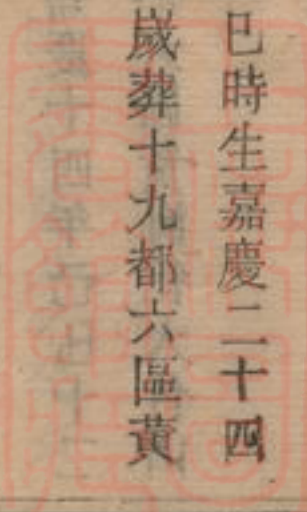 巳時生嘉慶二十四
歲葬十九都六區黃